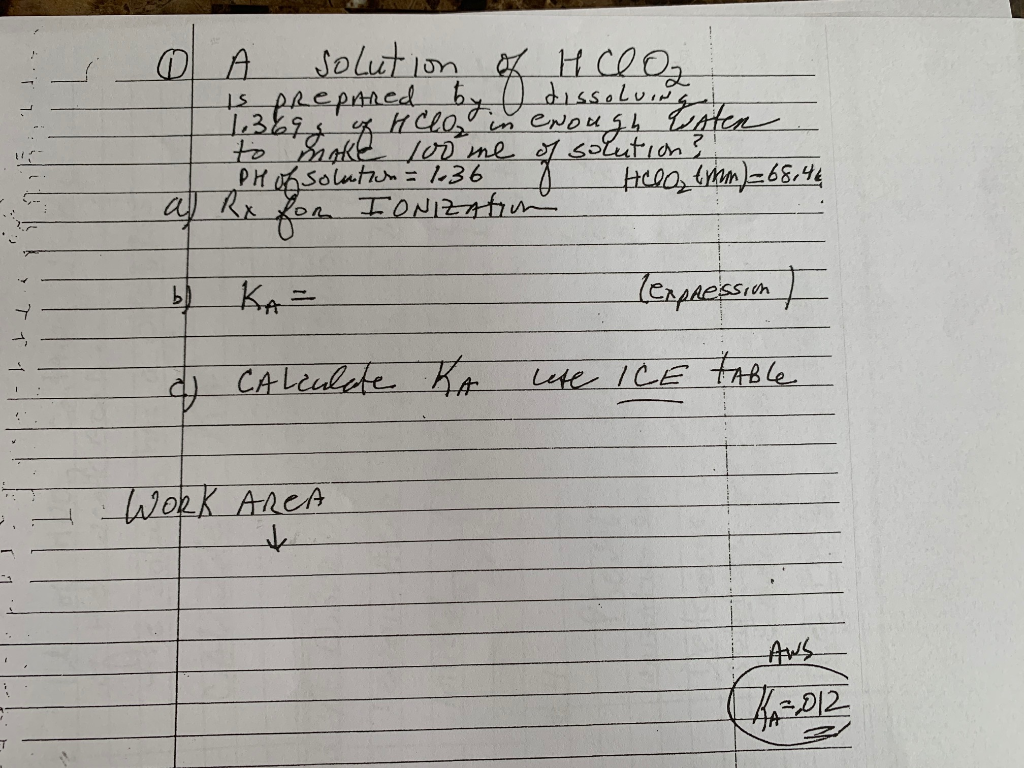 ① A solution of HClO2
is prepared by dissolving
1.369 g of HClO2 in enough water
to make 100 ml of solution?
PH of solution = 1.36 HClO2 (mm) = 68.46
a) Rx for IONIZATION
b) KA = (expression)
c) CALculate KA use ICE tABLe
WORK AREA
↓
AWS
KA = .012